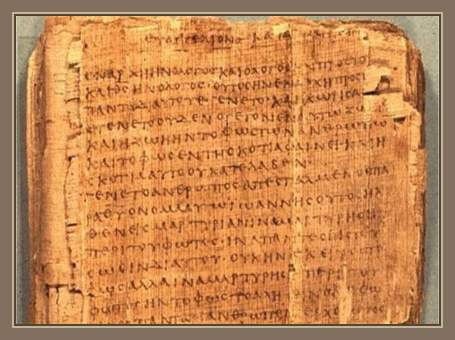 ΕΥΑΓΓΕΛΙΟΝ ΚΑΤΑ
ΕΝΑΡΧΗΗΝΟΛΟΓΟϹΚΑΙΟΛΟΓΟϹΗΝΠΡΟϹΤΟ
ΚΑΙΘϹΗΝΟΛΟΓΟϹΟΥΤΟϹΗΝΕΝΑΡΧΗΠΡΟϹΤ
ΠΑΝΤΑΔΙΑΥΤΟΥΕΓΕΝΕΤΟΚΑΙΧΩΡΙϹΑ
ΕΓΕΝΕΤΟΟΥΔΕΝΟΓΕΓΟΝΕΝΕΝΑΥΤΩΖΩ
ΚΑΙΗΖΩΗΗΝΤΟΦΩϹΤΩΝΑΝΘΡΩΠΩΝ
ΚΑΙΤΟΦΩϹΕΝΤΗϹΚΟΤΙΑΦΑΙΝΕΙΚΑΙΗ
ϹΚΟΤΙΑΑΥΤΟΟΥΚΑΤΕΛΑΒΕΝ
ΕΓΕΝΕΤΟΑΝΘΡΩΠΟϹΑΠΕϹΤΑΛΜΕΝΟϹΠΑ
ΡΑΘΥΟΝΟΜΑΑΥΤΩΙΩΑΝΝΗϹΟΥΤΟϹΗΛ
ΘΕΝΕΙϹΜΑΡΤΥΡΙΑΝΙΝΑΜΑΡΤΥΡΗϹΗ
ΠΕΡΙΤΟΥΦΩΤΟϹΙΝΑΠΑΝΤΕϹΠΙϹΤΕΥ
ϹΩϹΙΝΔΙΑΥΤΟΥΟΥΚΗΝΕΚΕΙΝΟϹΤΟ
ΦΩϹΑΛΛΑΙΝΑΜΑΡΤΥΡΗϹΗΠΕΡΙΤΟΥ
ΦΩΤΟϹΗΝΤΟΦΩϹΤΟΑΛΗ
ΠΑΝΤΑΑΝΘΡΩΠΟΝΕΡΧΟΜΕ